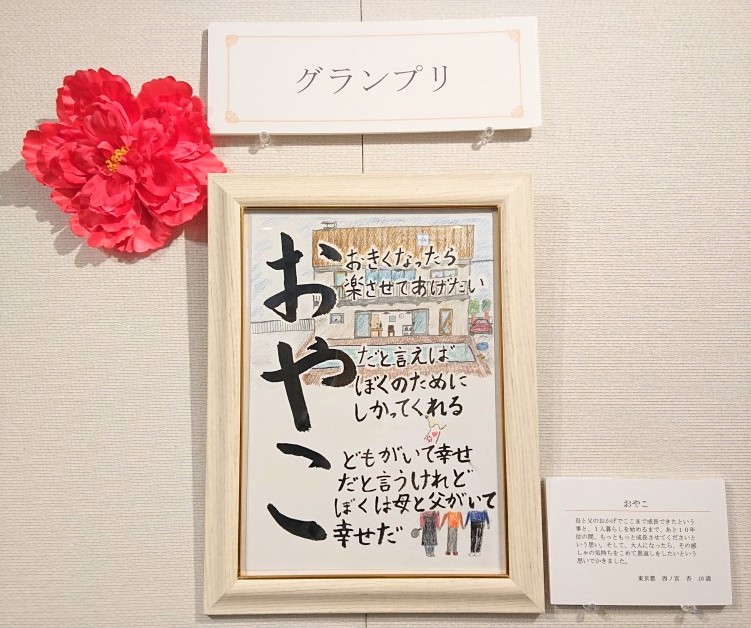 グランプリ
おやこ
おきくなったら
楽させてあげたい
だと言えば
ぼくのために
しかってくれる
どもがいて幸せ
だと言うけれど
ぼくは母と父がいて
幸せだ
おやこ
母と父のおかげでここまで成長できたという
事と、１人暮らしを始めるまで、あと１０年
位の間、もっともっと成長させてくださいと
いう思い。そして、大人になったら、その感
しゃの気持ちをこめて恩返しをしたいという
思いでかきました。
東京都　四ノ宮　杏　10歳